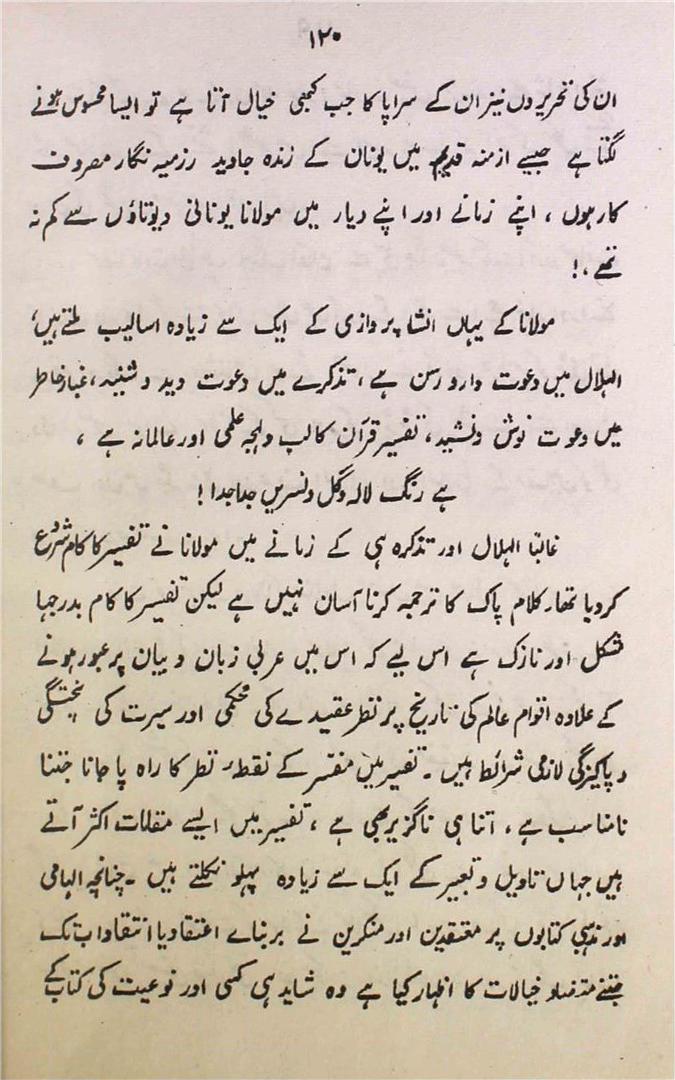 ۱۲۰
ان کی تحریروں نیز ان کے سراپا کا جب کبھی خیال آتا ہے تو ایسا محسوس ہونے
لگتا ہے جیسے ازمنہ قدیم میں یونان کے زندہ جاوید رزمیہ نگار مصروف
کار ہوں ، اپنے زمانے اور اپنے دیار میں مولانا یونانی دیوتاؤں سے کم نہ
تھے ،!
مولانا کے یہاں انشا پردازی کے ایک سے زیادہ اسالیب ملتے ہیں،
الہلال میں دعوت دار و رسن ہے ، تذکرے میں دعوت دید و شنید ، غبار خاطر
میں دعوت نوش و نشید ، تفسیر قرآن کا لب و لہجہ علمی اور عالمانہ ہے ،
ہے رنگ لالہ و گل و نسریں جدا جدا !
غالباً الہلال اور تذکرہ ہی کے زمانے میں مولانا نے تفسیر کا کام شروع
کر دیا تھا، کلام پاک کا ترجمہ کرنا آسان نہیں ہے لیکن تفسیر کا کام بدرجہا
مشکل اور نازک ہے اس لیے کہ اس میں عربی زبان و بیان پر عبور ہونے
کے علاوہ اقوام عالم کی تاریخ پر نظر عقیدے کی محکمی اور سیرت کی پختگی
و پاکیزگی لازمی شرائط ہیں ۔ تفسیر میں مفسر کے نقطۂ نظر کا راہ پا جانا جتنا
نامناسب ہے ، اتنا ہی ناگزیر بھی ہے ، تفسیر میں ایسے مقامات اکثر آتے
ہیں جہاں تاویل و تعبیر کے ایک سے زیادہ پہلو نکلتے ہیں ۔ چنانچہ الہامی
اور مذہبی کتابوں پر معتقدین اور منکرین نے بر بناے اعتقاد یا انتقاد اب تک
جتنے متضاد خیالات کا اظہار کیا ہے وہ شاید ہی کسی اور نوعیت کی کتاب کے